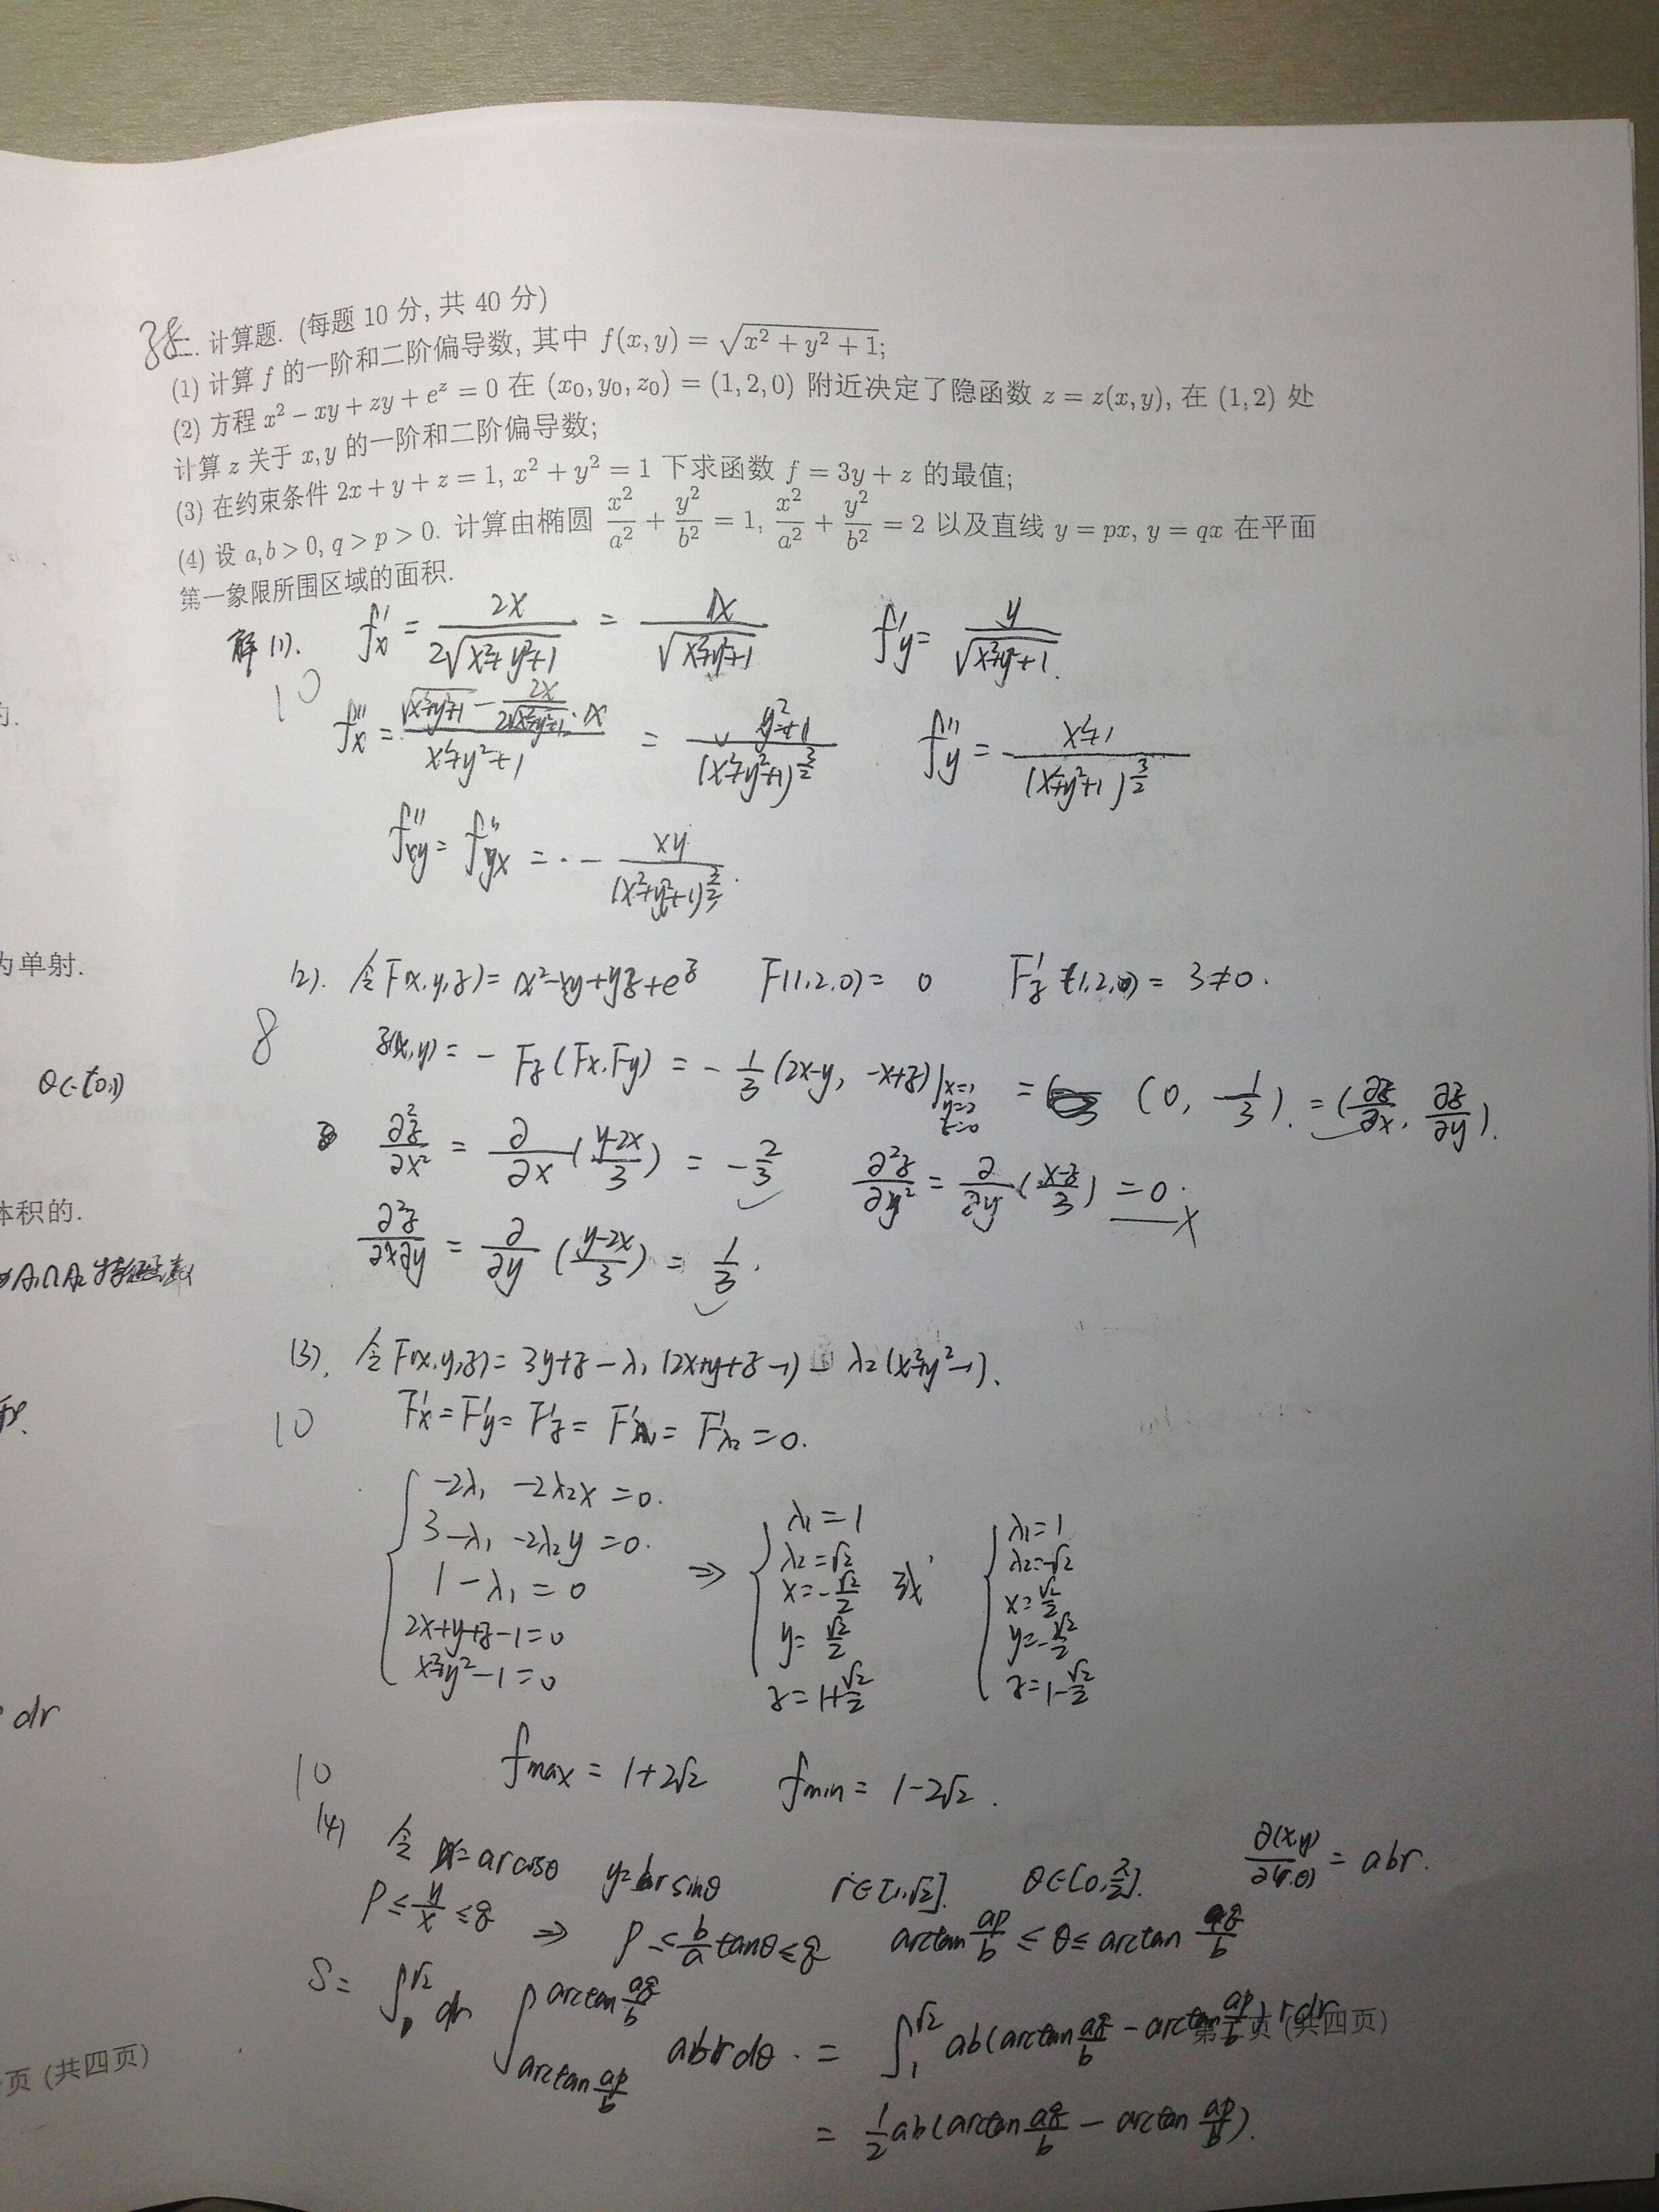 38
二. 计算题. (每题 10 分, 共 40 分)
(1) 计算 f 的一阶和二阶偏导数, 其中 f(x,y) = √(x² + y² + 1);
(2) 方程 x² − xy + zy + e^z = 0 在 (x₀,y₀,z₀) = (1,2,0) 附近决定了隐函数 z = z(x,y), 在 (1,2) 处
计算 z 关于 x,y 的一阶和二阶偏导数;
(3) 在约束条件 2x + y + z = 1, x² + y² = 1 下求函数 f = 3y + z 的最值;
(4) 设 a,b > 0, q > p > 0. 计算由椭圆 x²/a² + y²/b² = 1, x²/a² + y²/b² = 2 以及直线 y = px, y = qx 在平面
第一象限所围区域的面积.
解 (1). f'x = 2x/(2√(x²+y²+1)) = x/√(x²+y²+1) f'y = y/√(x²+y²+1).
10
f''x = (√(x²+y²+1) − 2x/(2√(x²+y²+1))·x)/(x²+y²+1) = (y²+1)/(x²+y²+1)^(3/2) f''y = (x²+1)/(x²+y²+1)^(3/2)
f''xy = f''yx = − xy/(x²+y²+1)^(3/2).
(2). 令F(x,y,z) = x²−xy+yz+e^z F(1,2,0) = 0 F'z(1,2,0) = 3≠0.
8
z(x,y) = − Fz(Fx,Fy) = − 1/3 (2x−y, −x+z)|x=1 y=2 z=0 = (0, −1/3). = (∂z/∂x, ∂z/∂y).
∂²z/∂x² = ∂/∂x((y−2x)/3) = −2/3 ✓ ∂²z/∂y² = ∂/∂y((x−z)/3) = 0. ×
∂²z/∂x∂y = ∂/∂y((y−2x)/3) = 1/3. ✓
(3). 令F(x,y,z) = 3y+z − λ₁(2x+y+z−1) − λ₂(x²+y²−1).
10
F'x = F'y = F'z = F'λ₁ = F'λ₂ = 0.
−2λ₁ −2λ₂x = 0.
3−λ₁ −2λ₂y = 0.
1 − λ₁ = 0
2x+y+z−1=0
x²+y²−1=0
⇒ λ₁ = 1
λ₂ = √2
x = −√2/2
y = √2/2
z = 1+√2/2
或
λ₁ = 1
λ₂ = −√2
x = √2/2
y = −√2/2
z = 1−√2/2
fmax = 1+2√2 fmin = 1−2√2.
10
(4) 令 x = arcosθ y = brsinθ r∈[1,√2]. θ∈[0,π/2]. ∂(x,y)/∂(r,θ) = abr.
p ≤ y/x ≤ q ⇒ p ≤ b/a tanθ ≤ q arctan ap/b ≤ θ ≤ arctan aq/b
S = ∫₁^√2 dr ∫_(arctan ap/b)^(arctan aq/b) abr dθ. = ∫₁^√2 ab(arctan aq/b − arctan ap/b) r dr
= 1/2 ab(arctan aq/b − arctan ap/b).
页 (共四页)
为单射.
体积的.
页 (共四页)
dr